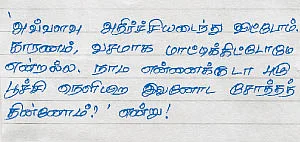 'அவ்வளவு அதிர்ச்சியடைந்து விட்டோம்.
காரணம், வசமாக மாட்டிக்கிட்டோமே
என்றல்ல. நாம என்னைக்குடா புழு
பூச்சி நெளியுற இவனோட சோத்தத்
தின்னோம்?' என்று!